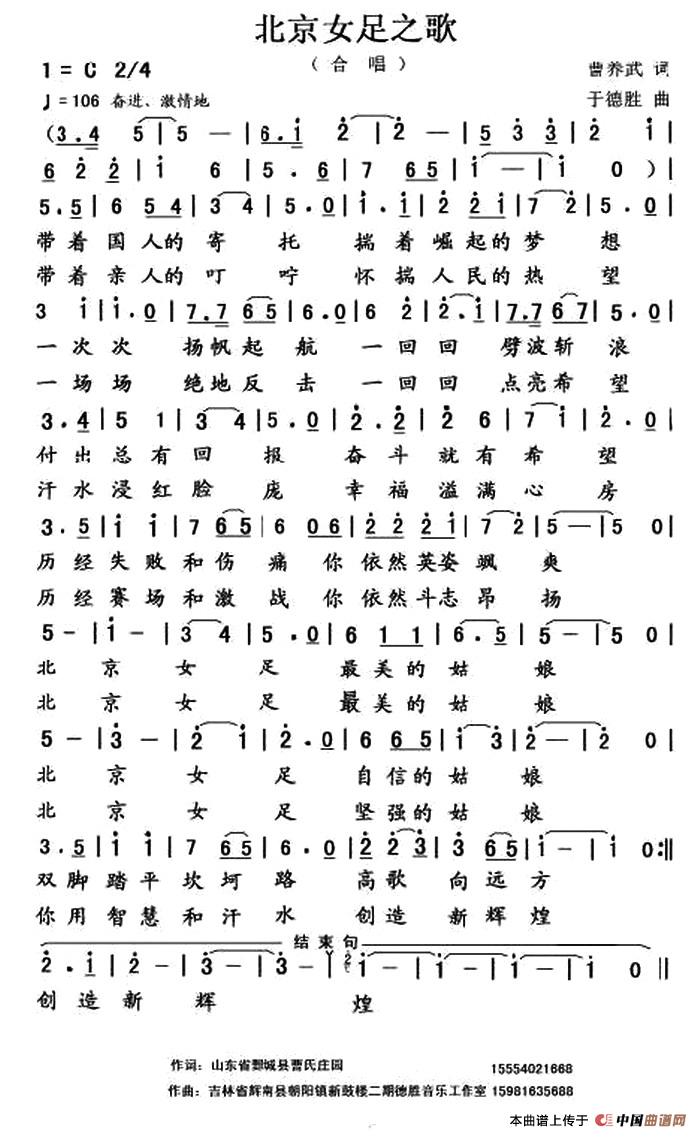 北京女足之歌
（合 唱）
1 = C 2/4
曹养武 词
♩= 106 奋进、激情地
于德胜 曲
(3.4 5 | 5 — | 6.i 2 | 2 — | 5 3 3 | 2 i |
6 2 2 | i 6 | 5 . 6 | 7 6 5 | i — | i 0 ) |
5.5 | 6 5 4 | 3 4 | 5 . 0 | i . i | 2 2 i | 7 2 | 5 . 0 |
带着国人的寄托 揣着崛起的梦想
带着亲人的叮咛 怀揣人民的热望
3 i | i . 0 | 7.7 6 5 | 6 . 0 | 6 2 | 2 . i | 7.7 6 5 | 5 . 0 |
一次次 扬帆起航 一回回 劈波斩浪
一场场 绝地反击 一回回 点亮希望
3 . 4 | 5 1 | 3 4 | 5 . 0 | 2 . 2 | 2 6 | 7 i | 2 . 0 |
付出总有回报 奋斗就有希望
汗水浸红脸庞 幸福溢满心房
3 . 5 | i i | 7 6 5 | 6 0 6 | 2 2 2 i | 7 2 | 5 — | 5 0 |
历经失败和伤痛你依然英姿飒爽
历经赛场和激战你依然斗志昂扬
5 - | i - | 3 4 | 5 . 0 | 6 1 1 | 6 . 5 | 5 — | 5 0 |
北京女足 最美的姑娘
北京女足 最美的姑娘
5 - | 3 - | 2 i | 2 . 0 | 6 6 5 | i 3 | 2 — | 2 0 |
北京女足 自信的姑娘
北京女足 坚强的姑娘
3 . 5 | i i | 7 6 5 | 6 . 0 | 2 2 3 | 3 6 5 | i — | i 0 :||
双脚踏平坎坷路 高歌向远方
你用智慧和汗水 创造新辉煌
结束句
2 . i | 2 - | 3 - | 3 - | i - | i - | i - | i 0 ||
创造新辉 煌
作词：山东省鄄城县曹氏庄园 15554021668
作曲：吉林省辉南县朝阳镇新鼓楼二期德胜音乐工作室 15981635688
本曲谱上传于 中国曲谱网